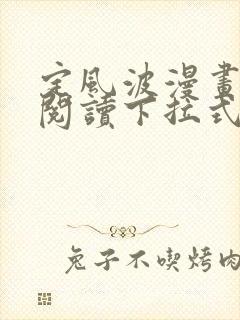 定風波漫畫
閱讀下拉式
兔子不喫烤肉